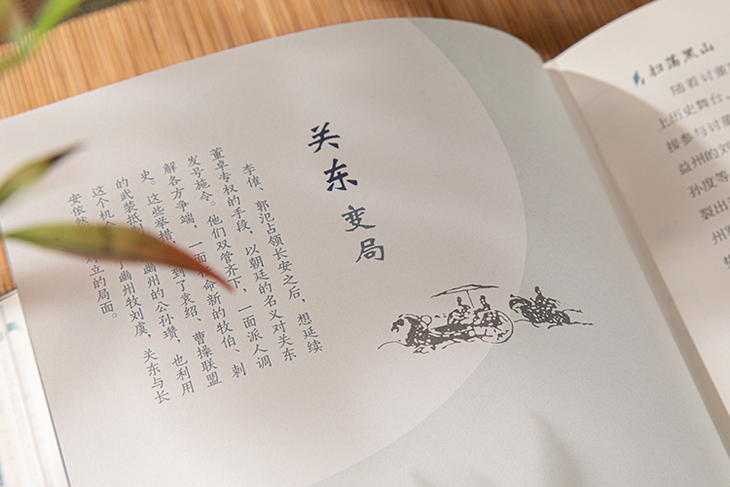 关东变局
李傕、郭汜占领长安之后，想延续
董卓专权的手段，以朝廷的名义对关东
发号施令。他们双管齐下，一面派人调
解各方争端，一面命新的牧伯、刺
史。这些举措，到了袁绍、曹操联盟
的武装抵，幽州的公孙瓒，也利用
这个机了幽州牧刘虞，关东与长
安依然立的局面。
扫荡黑山
随着讨董
上历史舞台、
接参与讨董
益州的刘
孙度等
裂出
州
如